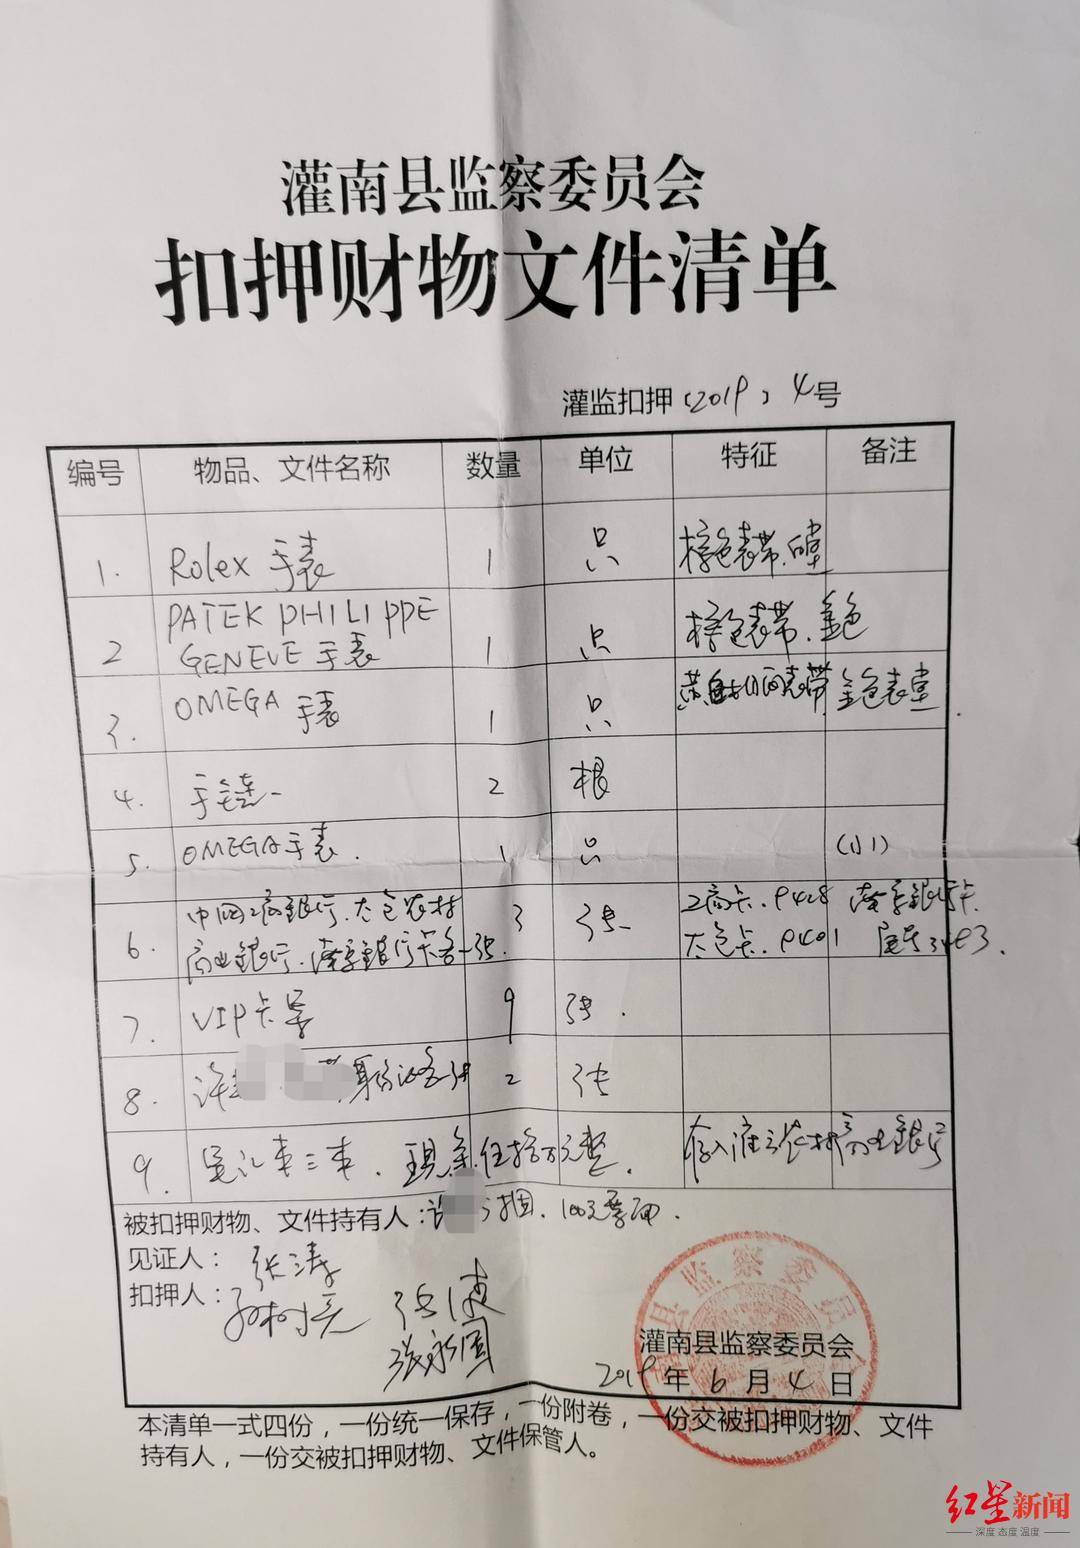 灌南县监察委员会
扣押财物文件清单
灌监扣押〔2019〕4号
编号 物品、文件名称 数量 单位 特征 备注
1. Rolex 手表 1 只 棕色表带.
2 PATEK PHILIPPE GENEVE 手表 1 只 棕色表带.金色
3. OMEGA 手表 1 只 表带 金色表壳.
4. 手链 2 根
5. OMEGA手表. 1 只 (小)
6. 中国工商银行.太仓农村商业银行.南京银行卡各一张. 3 张 工商卡. 9428 南京银行卡 太仓卡. 9401 尾号3483.
7. VIP卡等 9 张.
8. 许 身份证各一张 2 张
9. 笔记本三本. 现金伍拾万元整. 存入灌云农村商业银行
被扣押财物、文件持有人: 100元票面.
见证人: 张涛
扣押人:
灌南县监察委员会
2019年6月4日
本清单一式四份,一份统一保存,一份附卷,一份交被扣押财物、文件
持有人,一份交被扣押财物、文件保管人。
红星新闻
深度 态度 温度